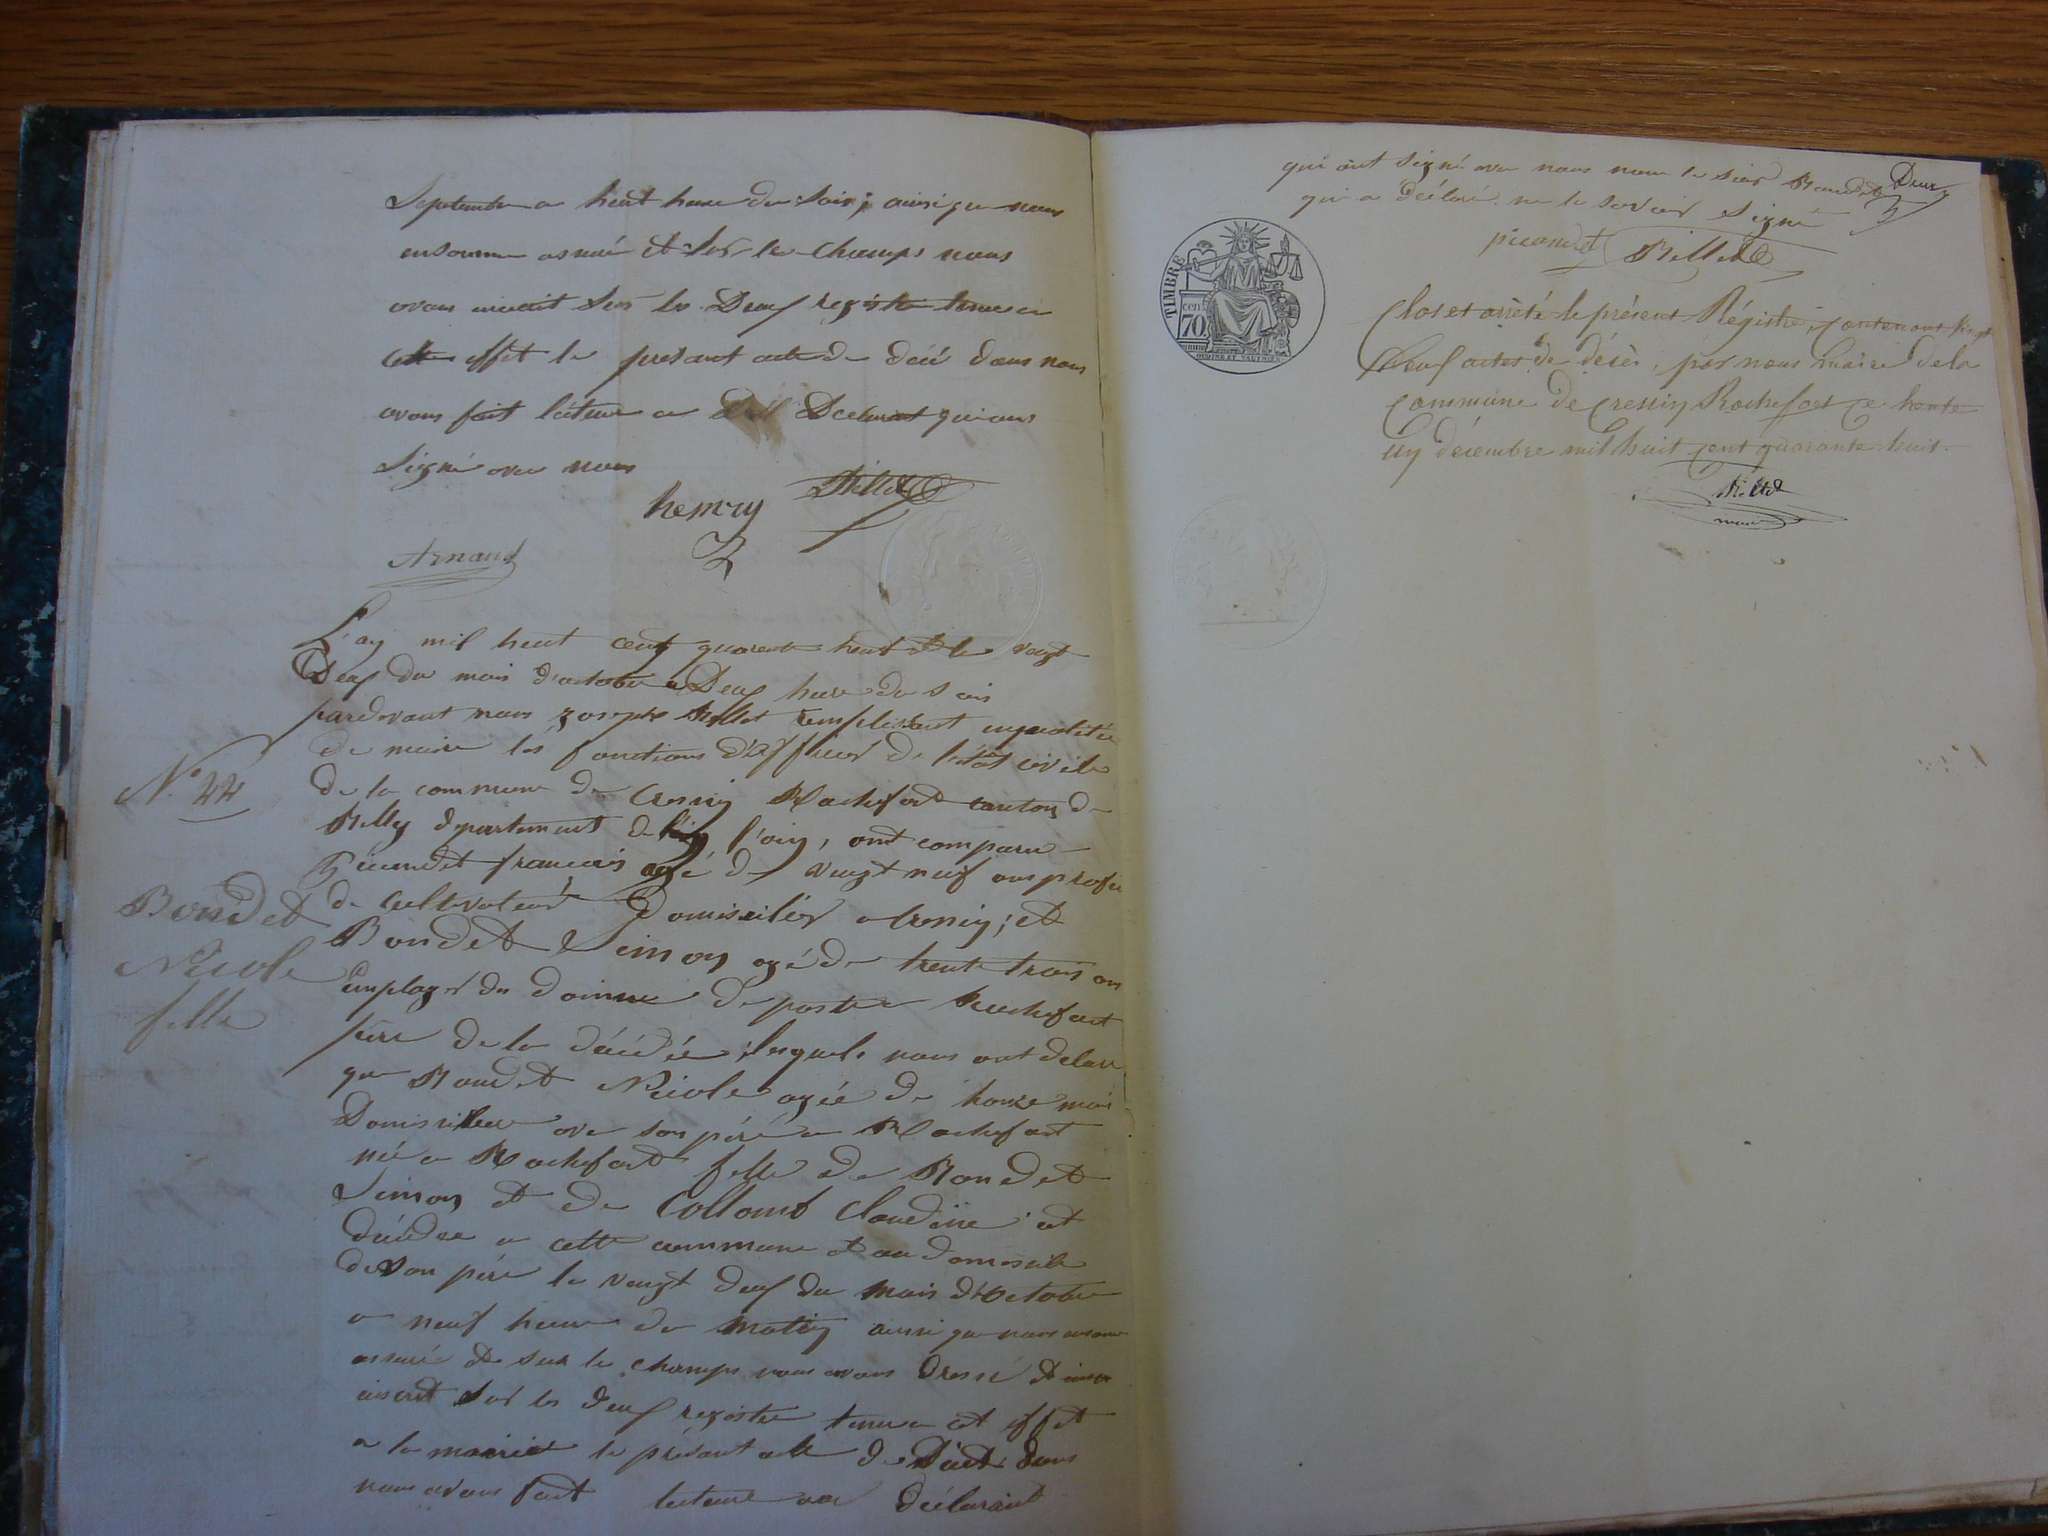 Septembre a heut heure du Soir; ainsi que nous
ensomme assuré et Sur le Champs nous
avons inscrit Sur les Deuf registre tenue a
cette effet le presant acte de décé dons nous
avons fait lécteure au Declarat qui ons
Signé avec nous
henry Billet
Arnaud
L'an mil heut cent quarente heut et le vengt
Deuf du mois d'octobre a Deuf heure du Soir
pardevant nous Joseph Billet remplissant enqualitée
de maire les fonctions d'officier de l'état civile
de la commune de Cressin Rochefort canton de
Belley departement de l'ain, ont comparu
Picundet francois agé de vengt neuf ans profe
de cultivateur Domicilier a Cressin; et
Bondet Simon agé de trente trois ans
Employer du Doinne De poste a Rochefort
père de la décédée; lesquels nous ont delare
que Bondet Nicole agée de honze mois
Domicilleer ave son pére a Rochefort
née a Rochefort felle de Bondet
Simon et de Collomb Claudine est
décédee a cette commune et au domicile
de son pére le vengt deuf du mois d'octobre
a neuf heure du matin ainsi que nous
assuré et sur le champs nous avons Dressé et
inscrit Sur les deuf registre tenue a cet effet
a la mairie le présant acte de Décé dons
nous avons fait lecteure au déclarant
N° 22
Bondet
Nicole
felle
qui ont signé avec nous non le sieur Bondet Deux
qui a déclaré ne le savoir signé
picundet Billet
TIMBRE
70 cen
Clos et arrêté le présent Régistre, contenant vingt
Deuf actes de décès, par nous Maire de la
Commune de Cressin Rochefort ce trente
un décembre mil huit cent quarante-huit.
Billet
maire